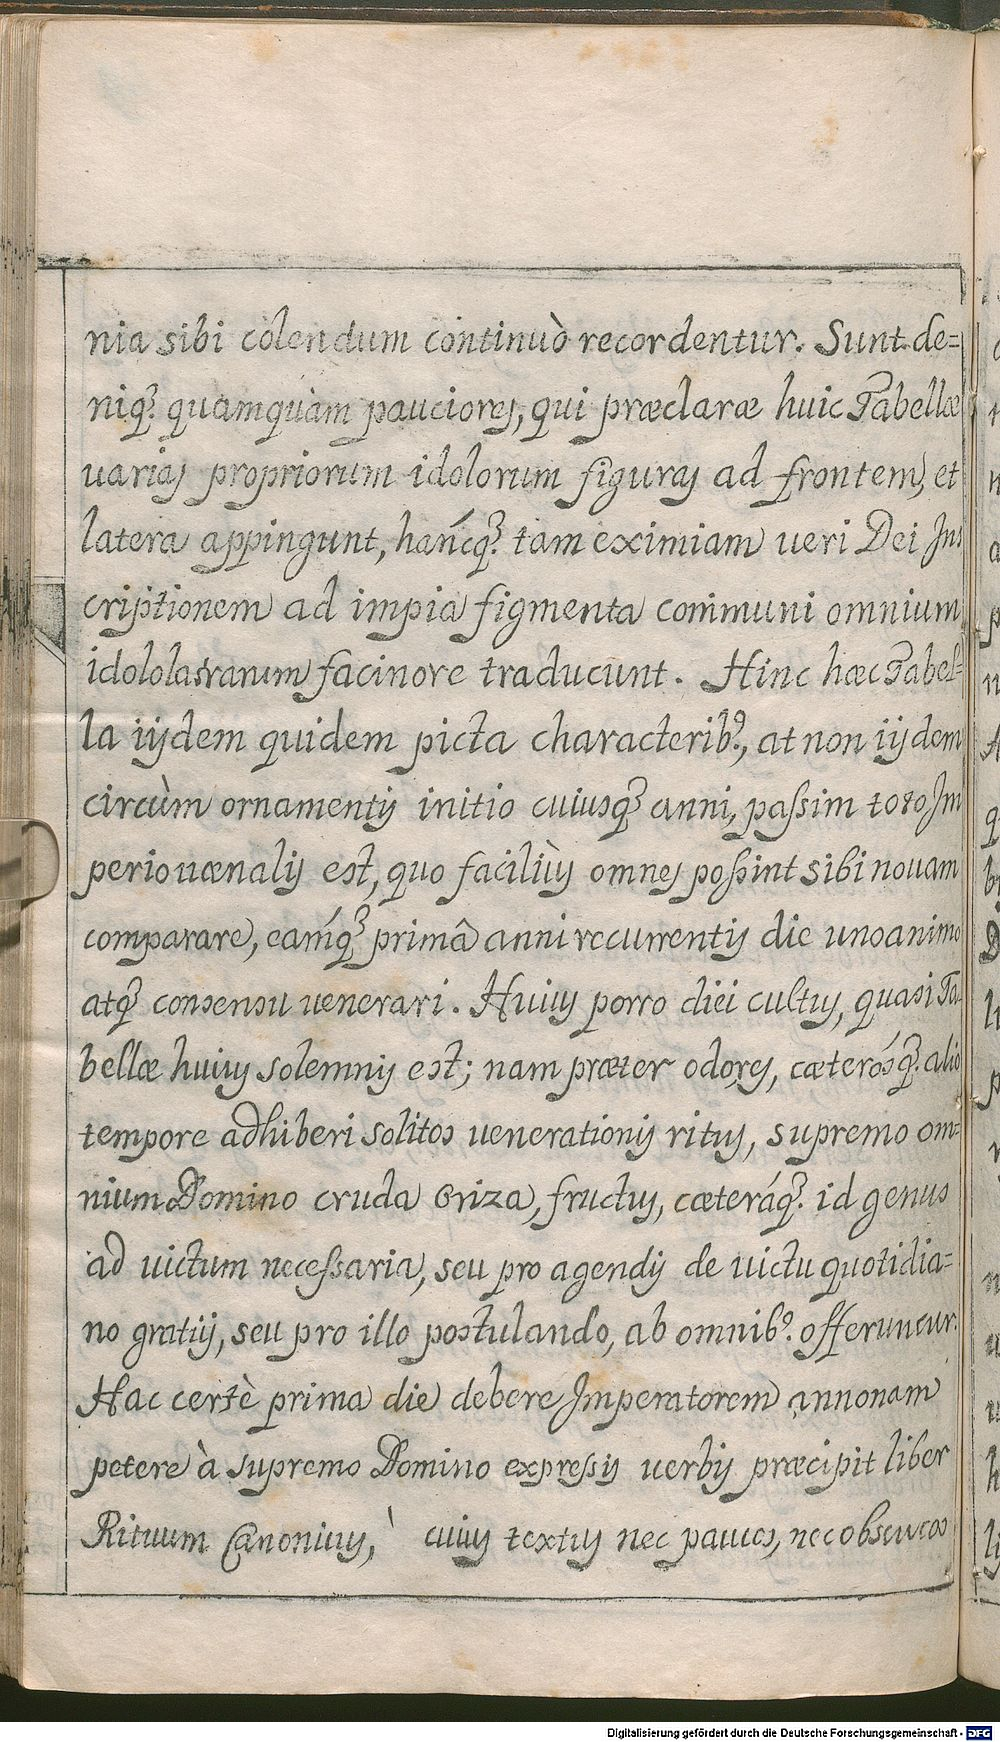 nia sibi colendum continuò recordentur. Sunt de=
niq3. quamquàm pauciores, qui præclaræ huic Tabellæ
uarias propriorum idolorum figuras ad frontem, et
latera appingunt, háncq3. tam eximiam ueri Dei Ins
criptionem ad impia figmenta communi omnium
idololatrarum facinore traducunt. Hinc hæc Tabel=
la iijdem quidem picta characterib9, at non iijdem
circùm ornamentis initio cuiusq3 anni, passim toto Im
perio uænalis est, quo faciliùs omnes possint sibi nouam
comparare, eamq́3 primâ anni recurrentis die unoanimo
atq3 consensu uenerari. Huius porro diei cultus, quasi Ta-
bellæ huius solemnis est; nam præter odores, cæterósq3. alio
tempore adhiberi solitos uenerationis ritus, supremo om=
nium Domino cruda Oriza, fructus, cæteráq3. id genus
ad uictum necessaria, seu pro agendis de uictu quotidia=
no gratiis, seu pro illo postulando, ab omnib9. offeruntur.
Hac certè prima die debere Imperatorem annonam
petere à supremo Domino expressis uerbis præcipit liber
Rituum Canonicus, cuius textus nec paucos, nec obscuros
Digitalisierung gefördert durch die Deutsche Forschungsgemeinschaft - DFG